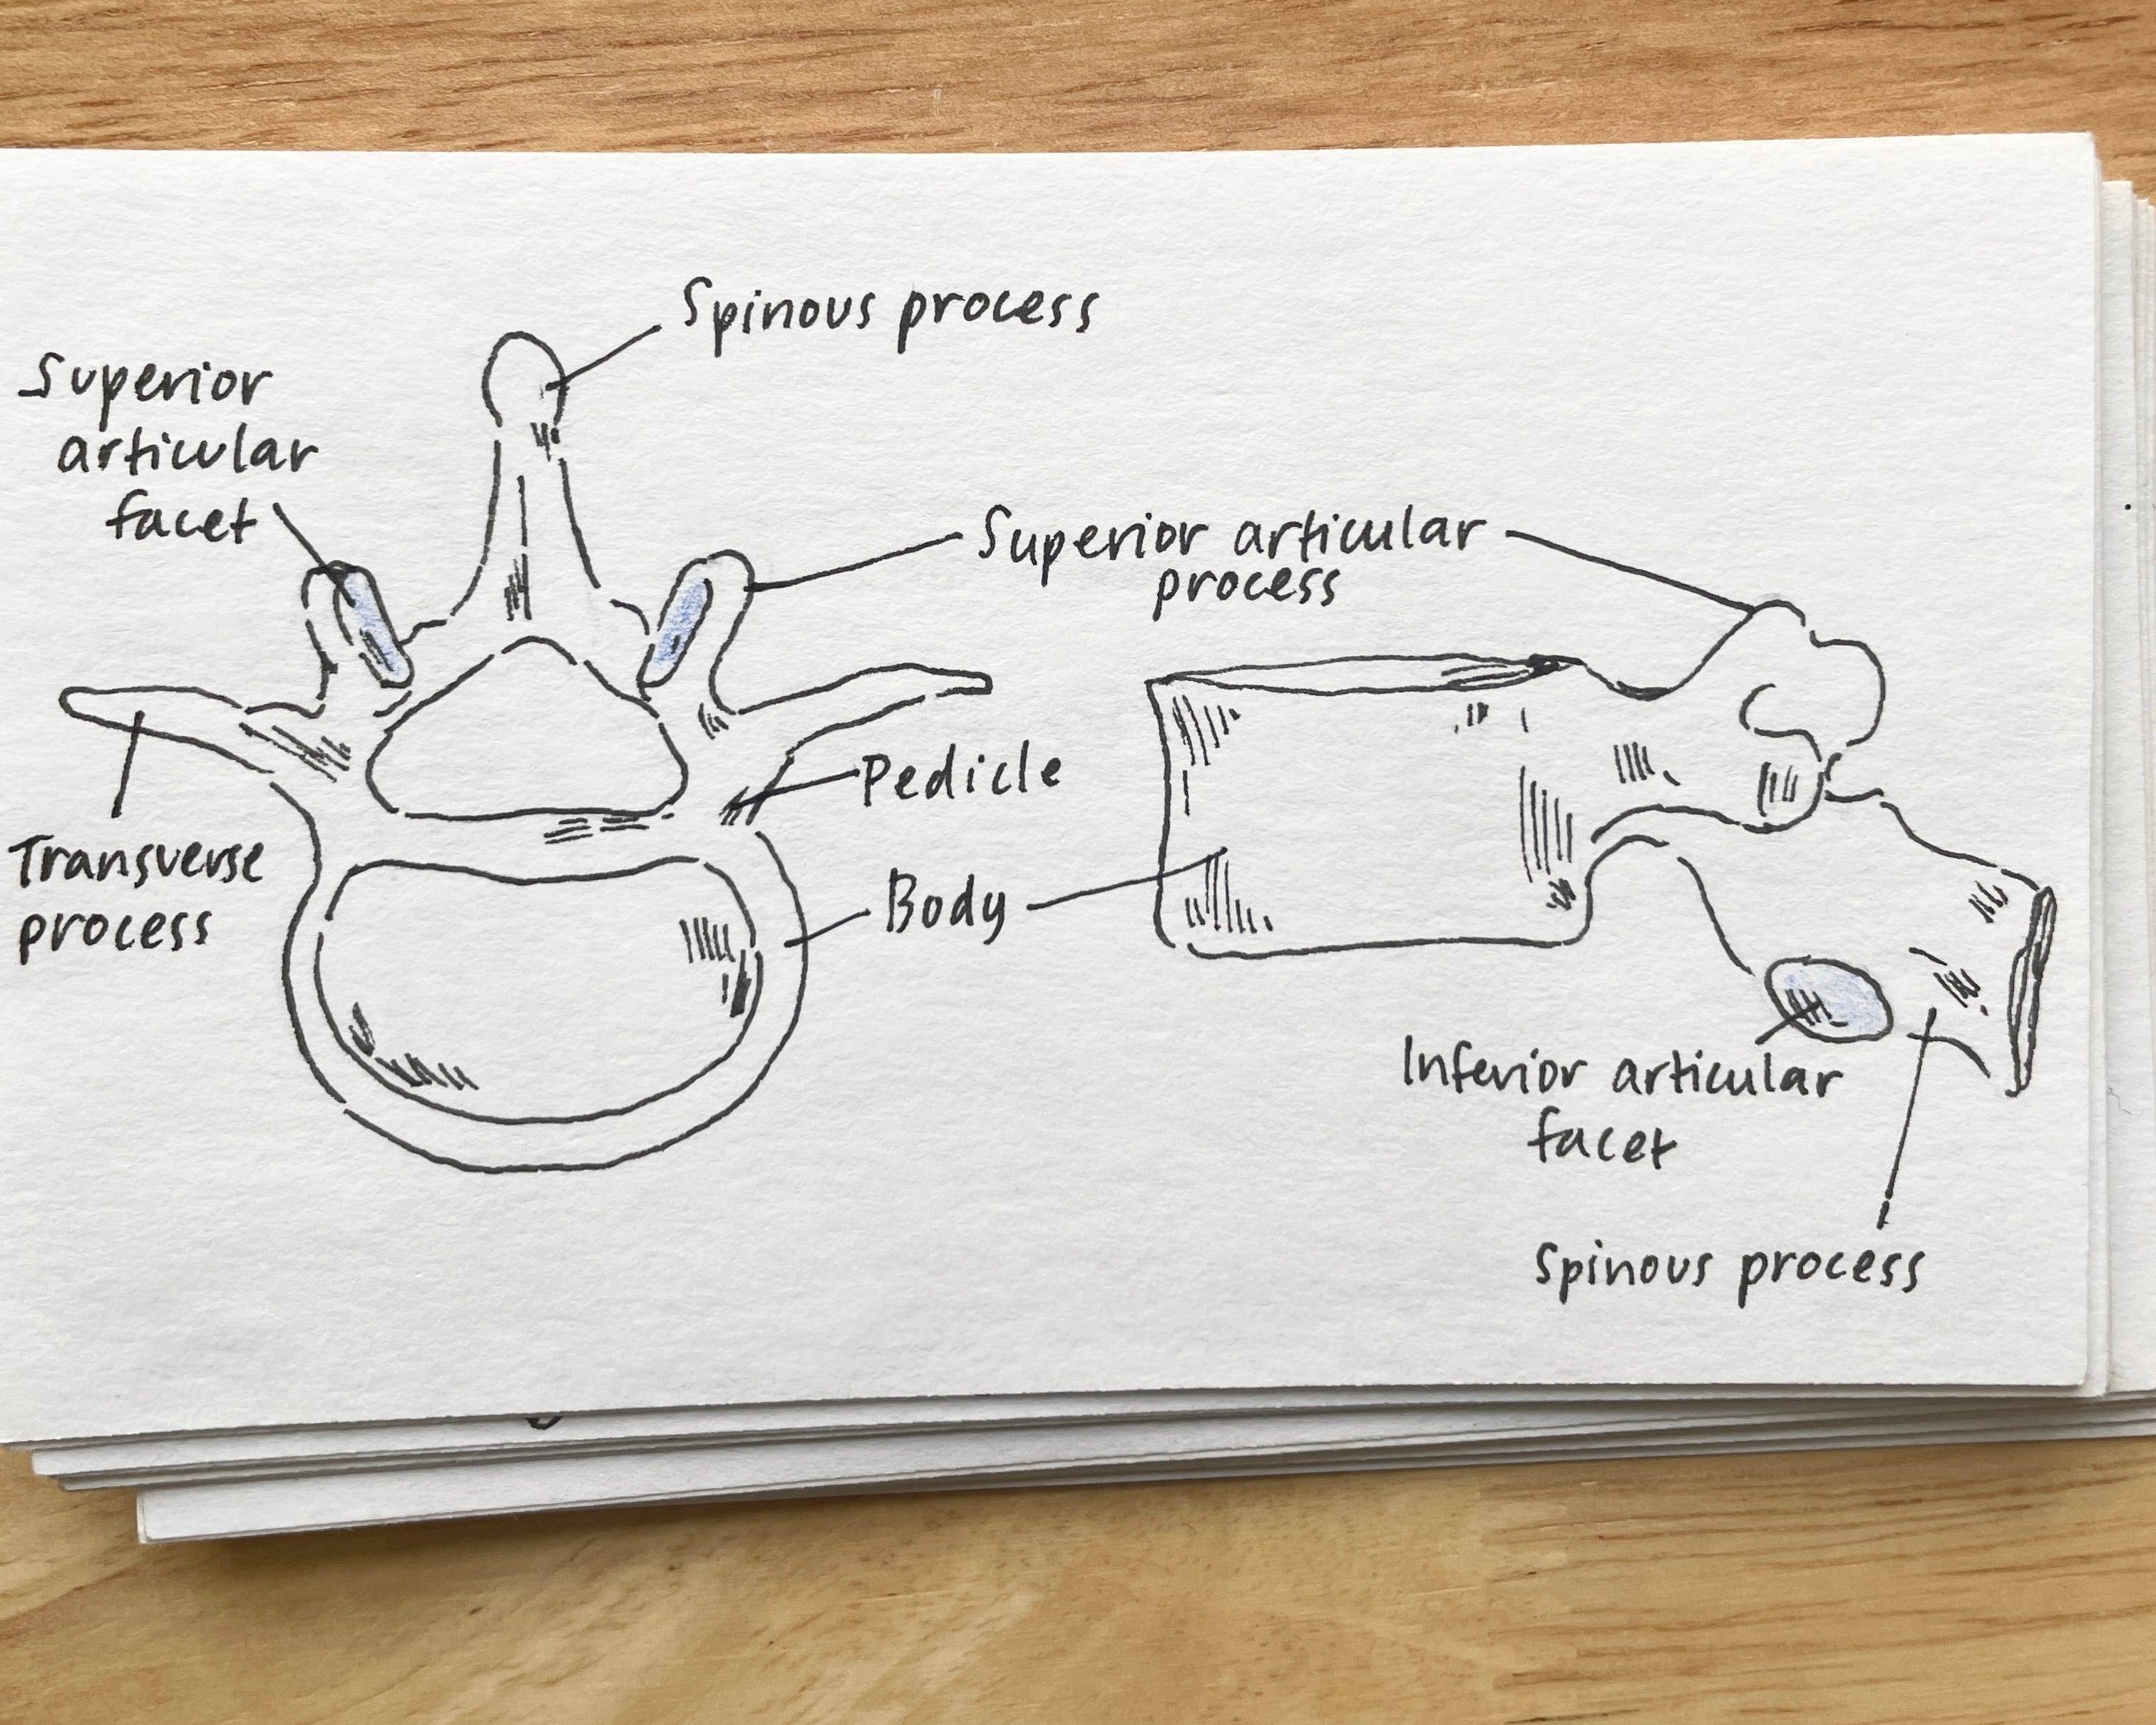 Spinous process
Superior
articular
facet
Superior articular
process
Pedicle
Transverse
process
Body
Inferior articular
facet
Spinous process